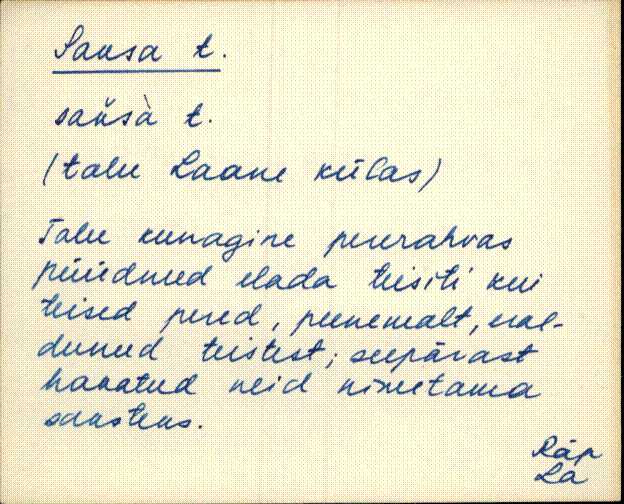 Sausa t.
saŭsà t.
(talu Laane külas)
Talu kunagine pererahvas
püüdnud elada teisiti kui
teised pered, peenemalt, eral-
dunud teistest; seepärast
hakatud neid nimetama
saksteks.
Räp
La